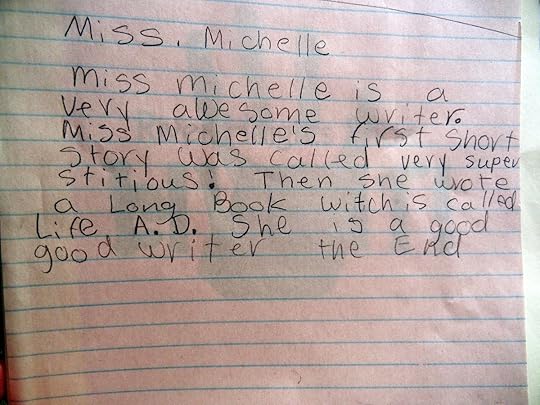 Miss. Michelle
Miss Michelle is a
very awesome writer.
Miss Michelle's first short
story was called very super
stitious! Then she wrote
a Long Book witch is called
Life, A.D. She is a good
good writer the End